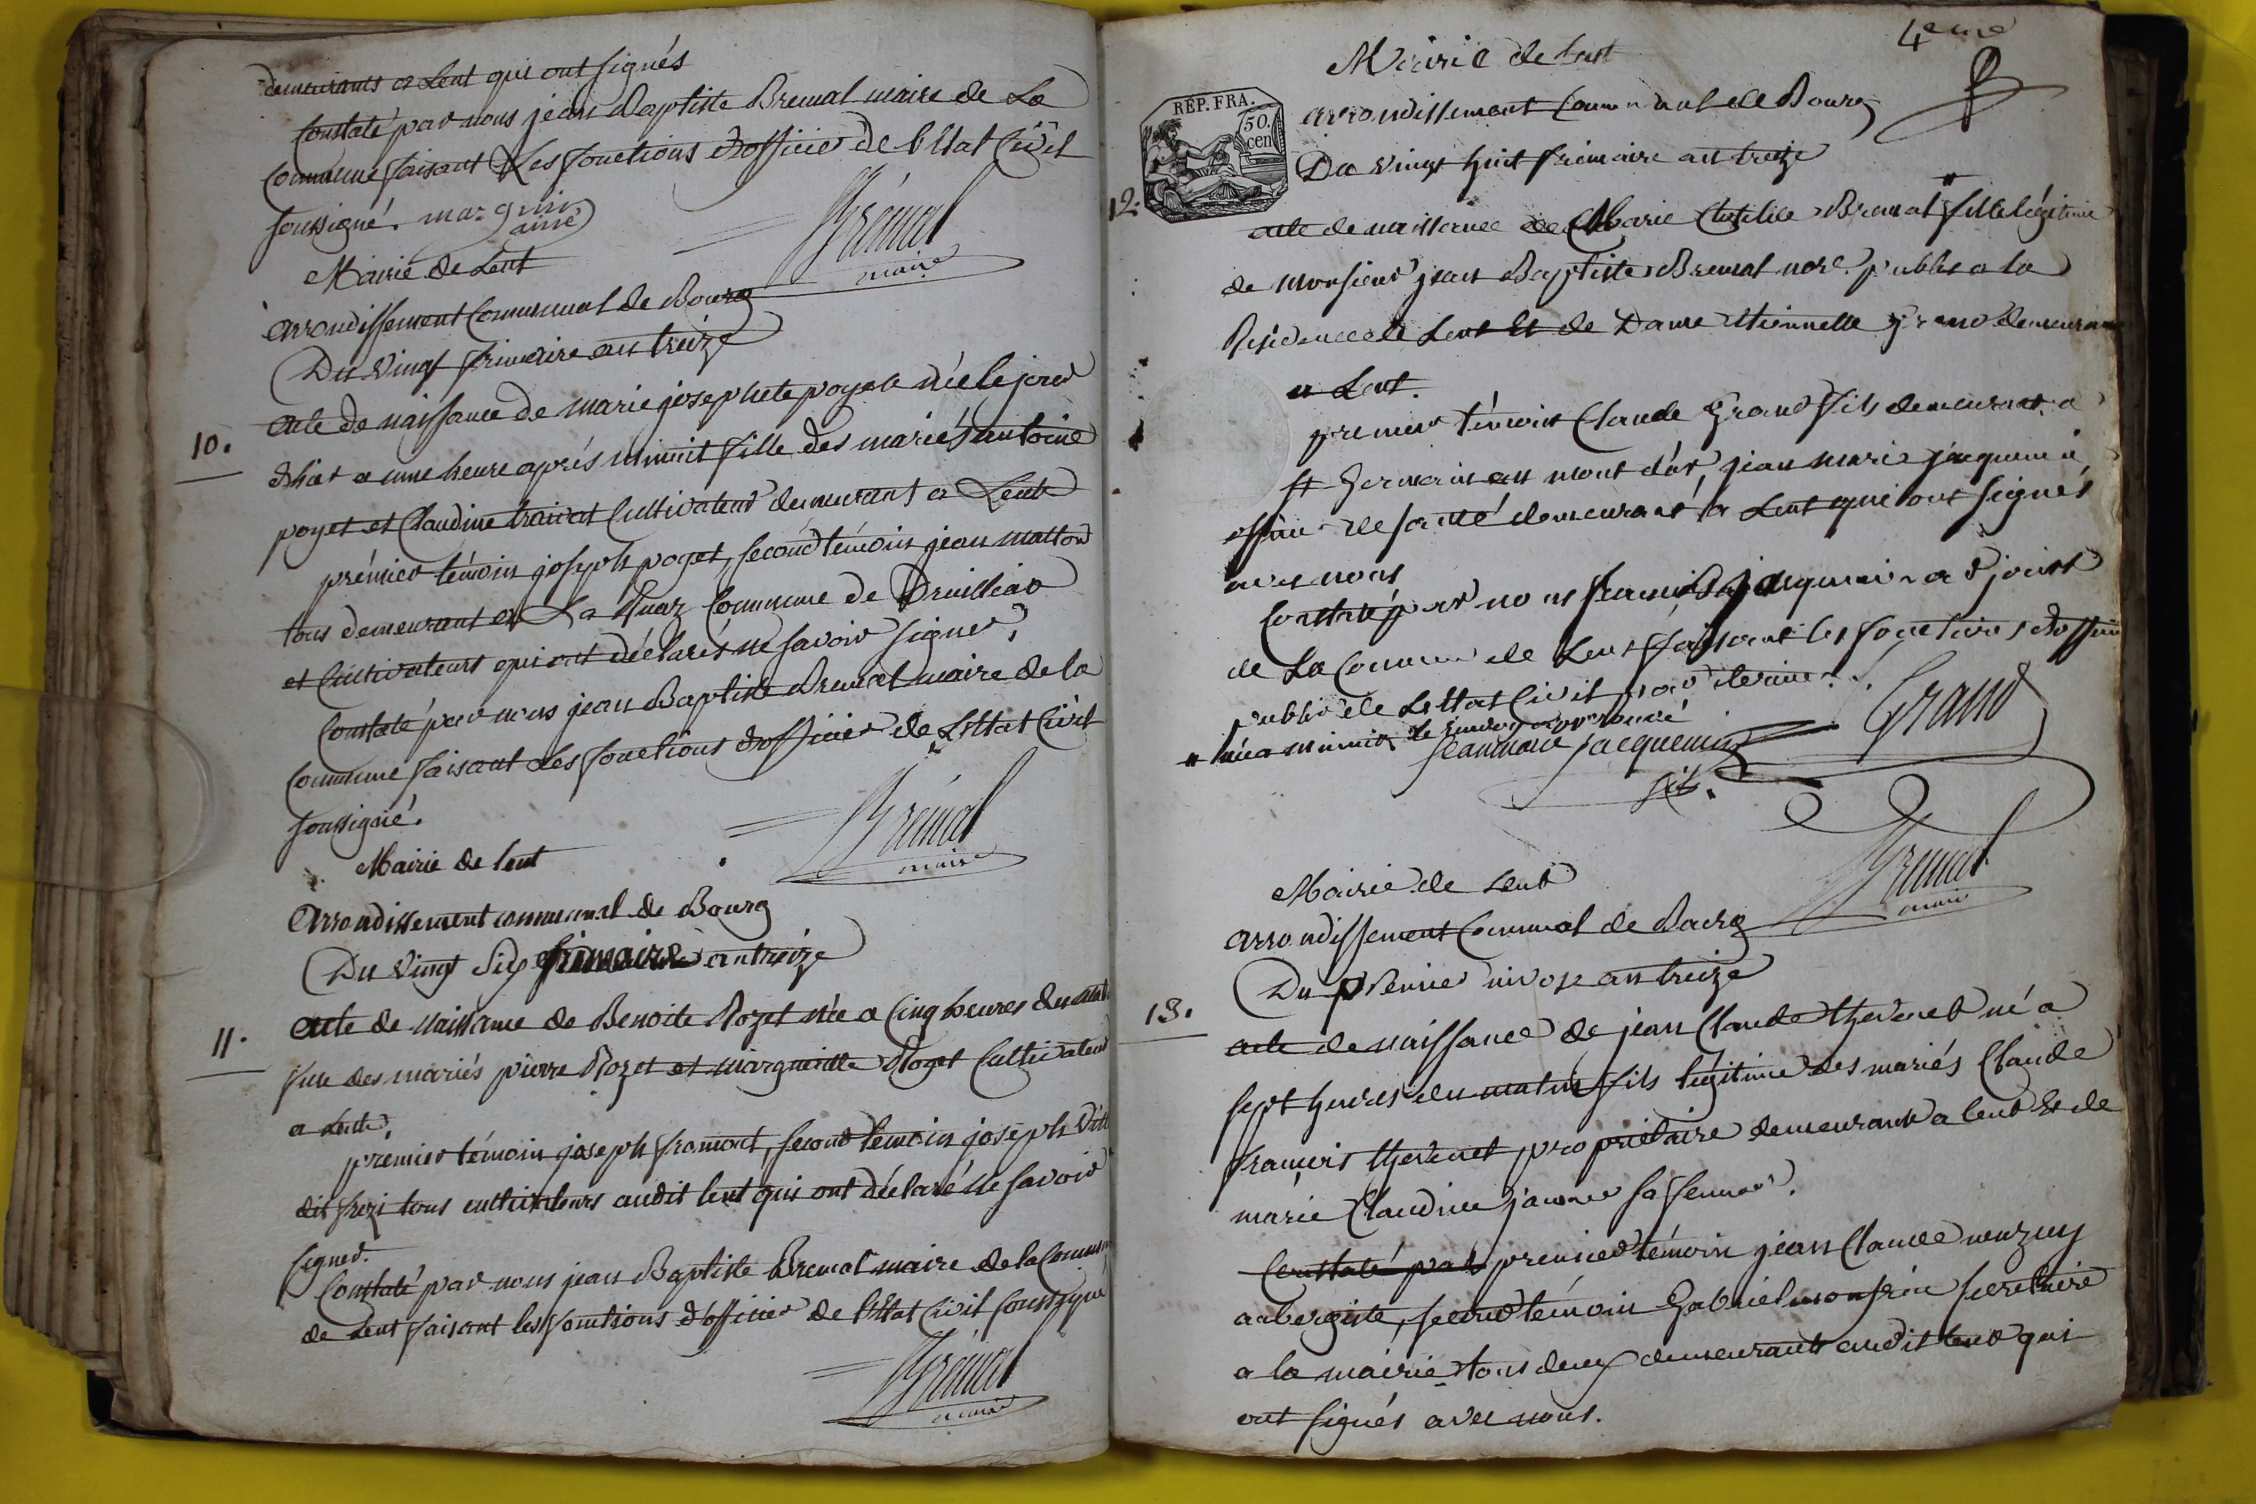 demeurants a Lent qui ont signés
Constaté par nous jean Baptiste Bremal maire de La
Commune faisant Les fonctions d'officier de l'Etat Civil
soussigné. marguin
ainé
Brémal
maire
Mairie de Lent
arrondissement Communal de Bourg
Du vingt frimaire an treize
10.
acte de naissance de marie josephete poyet née le jour
d'hier a une heure aprés minuit fille des mariés antoine
poyet et Claudine travat Cultivateur demeurant a Lent
prémier témoin joseph poyet, second témoin jean matton
tous demeurant a La Commune de Druilliat
et Cultivateurs qui ont déclarés ne savoir signer,
Constaté par nous jean Baptiste Bremal maire de la
Commune faisant Les fonctions d'officier de L'Etat Civil
soussigné.
Brémal
maire
Mairie de lent
Arrondissement communal de Bourg
Du vingt six frimaire an treize
11.
acte de Naissance de Benoite Rozet née a Cinq heures du matin
fille des mariés pierre Rozet et marguerite Roget Cultivateur
a Lent.
premier témoin joseph fromont, second témoin joseph
dit frezi tous cultivateurs audit lent qui ont déclaré ne savoir
signer.
Constaté par nous jean Baptiste Bremal maire de la Commune
de Lent faisant les fonctions d'officier de l'Etat Civil soussigné
Brémal
maire
4eme
Mairie de Lent
REP. FRA.
50.
cen
arrondissement Communal de Bourg
Du vingt huit frimaire an treize
12.
acte de naissance de Marie Clotilde Bremal fille légitime
de monsieur jean Baptiste Bremal nore. public a la
Residence de Lent Et de Dame Etiennette grand demeurant
a Lent.
premier témoin Claude Grand fils demeurant a
st Germain au mont d'or, jean marie jacquemin
officier de santé demeurant a Lent qui ont signés
avec nous
Constaté par nous françois jacquemin adjoint
de La Commune de Lent faisant les fonctions d'officier
public de L'Etat Civil par
née a minuit le renvoy approuvé
Jeanmarie jacquemin
fils.
Grand
Brémal
maire
Mairie de Lent
arrondissement Communal de Bourg
Du premier nivose an treize
13.
acte de naissance de jean Claude thevenet né a
sept heures du matin fils légitime des mariés Claude
françois thevenet propriétaire demeurant a lent Et de
marie Claudine sa femme.
Constaté par premier témoin jean Claude
aubergiste, second témoin Gabriel secretaire
a la mairie tous deux demeurants audit lent qui
ont signés avec nous.